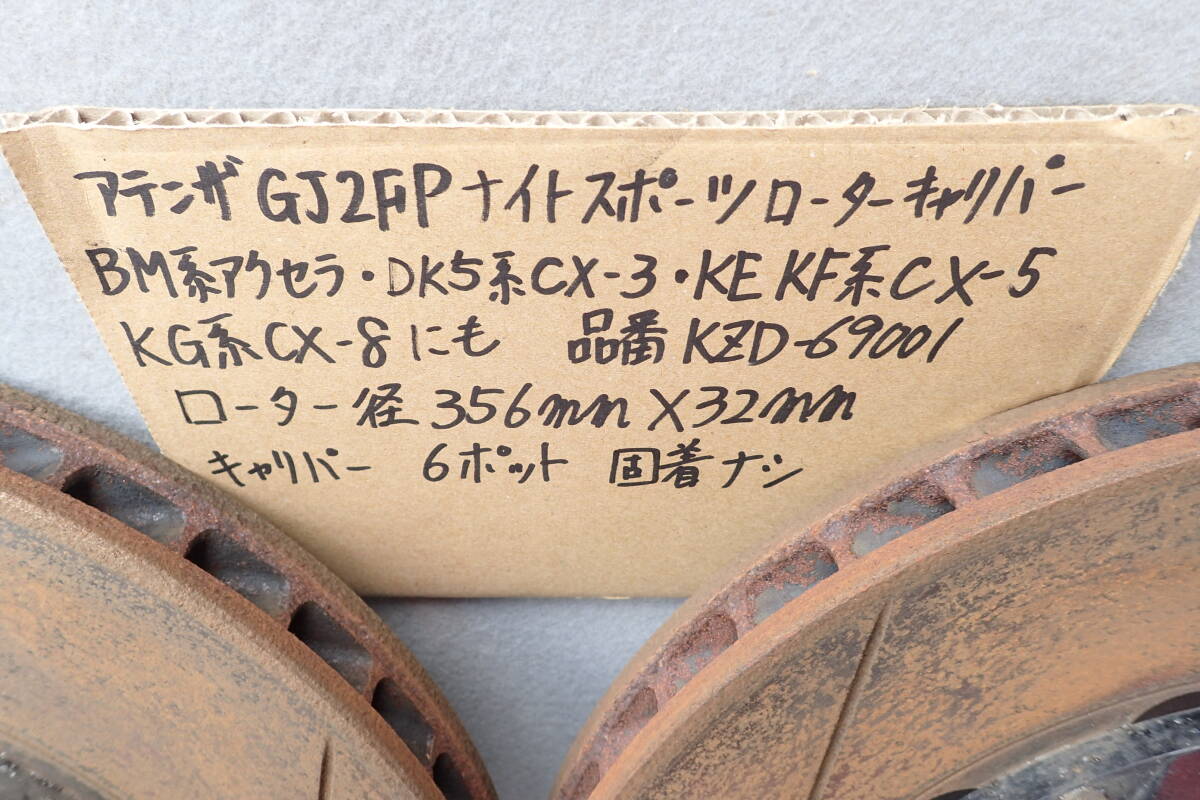 アテンザ GJ2FP ナイトスポーツローターキャリパー
BM系アクセラ・DK5系CX-3・KE KF系CX-5
KG系CX-8にも 品番 KZD-69001
ローター径 356mm X 32mm
キャリパー 6ポット 固着ナシ